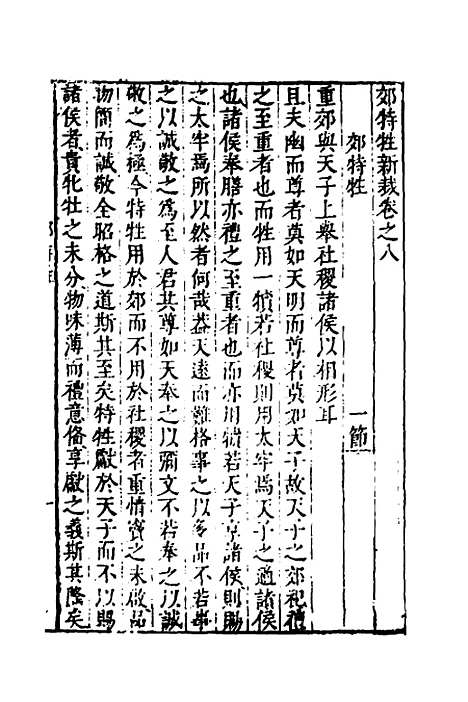 郊特牲新裁卷之八
郊特牲　一節
重郊與天子上舉社稷諸侯以相形耳
且夫幽而尊者莫如天明而尊者莫如天子故天子之郊祀禮
之至重者也而牲用一犢若社稷則用太牢焉天子之適諸侯
也諸侯奉膳亦禮之至重者也而亦用犢若天子享諸侯則賜
之太牢焉所以然者何哉葢天遠而難格事之以多品不若事
之以誠敬之爲至人君其尊如天奉之以彌文不若奉之以誠
敬之爲極今特牲用於郊而不用於社稷者重情竇之未啟品
物簡而誠敬全昭格之道斯其至矣特牲獻於天子而不以賜
諸侯者貴牝牡之未分物味薄而禮意脩享獻之義斯其隆矣